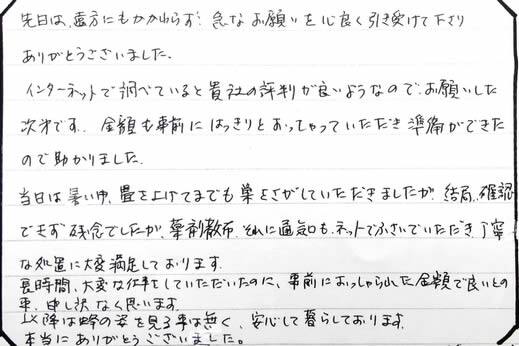 先日は、遠方にもかかわらず、急なお願いを心良く引き受けて下さり
ありがとうございました。
インターネットで調べていると貴社の評判が良いようなのでお願いした
次才です。金額も事前にはっきりとおっしゃっていただき準備ができた
ので助かりました。
当日は暑い中、畳を上げてまでも巣をさがしていただきましたが、結局、確認
できず残念でしたが、薬剤散布、それに通気口も、ネットでふさいでいただき、丁寧
な処置に大変満足しております。
長時間、大変な仕事をしていただいたのに、事前におっしゃられた金額で良いとの
事、申し訳なく思います。
以降は蜂の姿を見る事は無く、安心して暮らしております。
本当にありがとうございました。